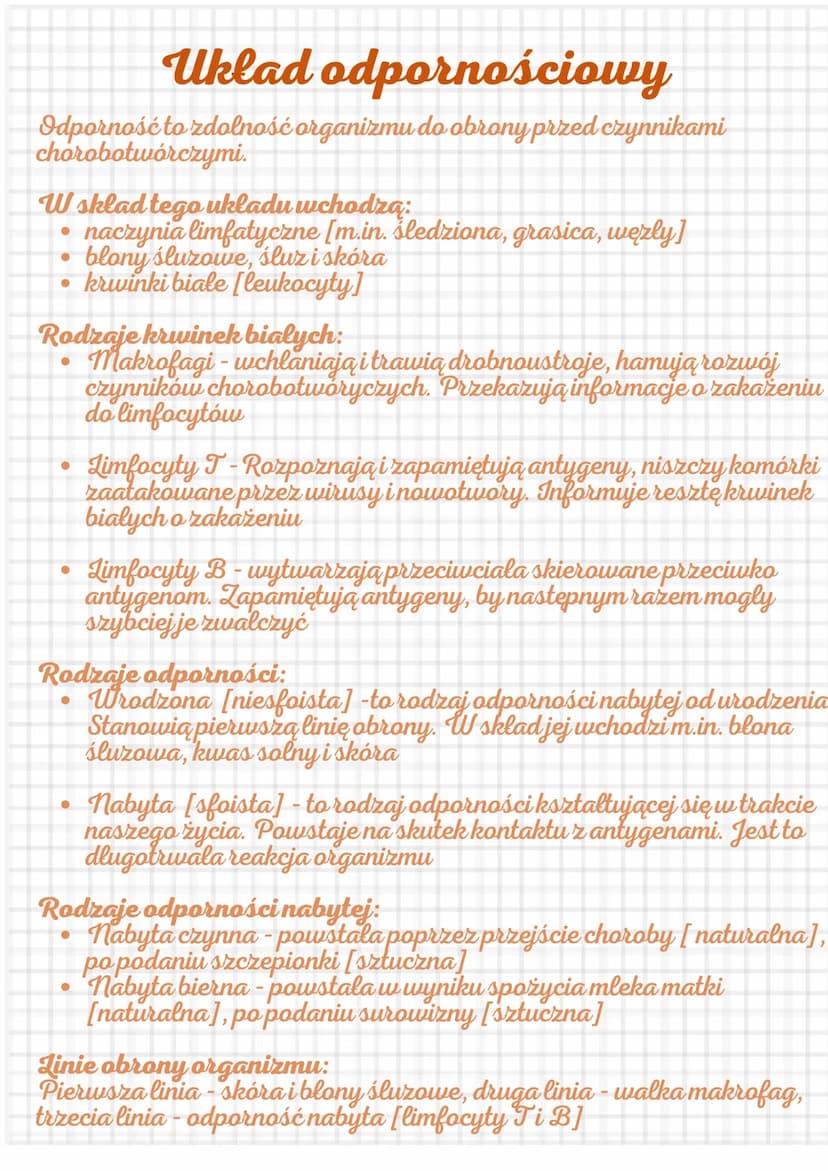 Układ odpornościowy
Odporność to zdolność organizmu do obrony przed czynnikami
chorobotwórczymi.
W skład tego układu wchodzą:
• naczynia limfatyczne [m.in. śledziona, grasica, węzły]
• błony śluzowe, śluz i skóra
• krwinki białe [leukocyty]
Rodzaje krwinek białych:
• Makrofagi - wchłaniają i trawią drobnoustroje, hamują rozwój
czynników chorobotwóryczych. Przekazują informacje o zakażeniu
do limfocytów
• Limfocyty T - Rozpoznają i zapamiętują antygeny, niszczy komórki
zaatakowane przez wirusy i nowotwory. Informuje resztę krwinek
białych o zakażeniu
• Limfocyty B - wytwarzają przeciwciała skierowane przeciwko
antygenom. Zapamiętują antygeny, by następnym razem mogły
szybciej je zwalczyć
Rodzaje odporności:
• Wrodzona [niesfoista] -to rodzaj odporności nabytej od urodzenia
Stanowią pierwszą linię obrony. W skład jej wchodzi m.in. błona
śluzowa, kwas solny i skóra
• Nabyta [sfoista] - to rodzaj odporności kształtującej się w trakcie
naszego życia. Powstaje na skutek kontaktu z antygenami. Jest to
długotrwała reakcja organizmu
Rodzaje odporności nabytej:
• Nabyta czynna - powstała poprzez przejście choroby [ naturalna],
po podaniu szczepionki [sztuczna]
• Nabyta bierna - powstała w wyniku spożycia mleka matki
[naturalna], po podaniu surowizny [sztuczna]
Linie obrony organizmu:
Pierwsza linia - skóra i błony śluzowe, druga linia - walka makrofag,
trzecia linia - odporność nabyta [limfocyty T i B]